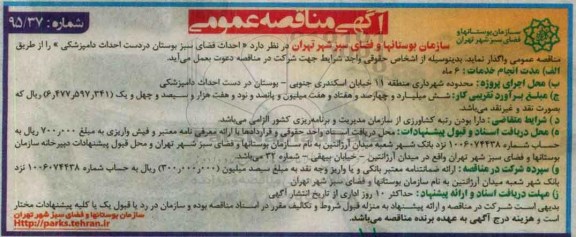 آگهی مناقصه عمومی
شماره: ۹۵/۳۷
سازمان بوستانها و
فضای سبز شهر تهران
سازمان بوستانها و فضای سبز شهر تهران در نظر دارد « احداث فضای سبز بوستان دردست احداث دامپزشکی » را از طریق
مناقصه عمومی واگذار نماید. بدینوسیله از اشخاص حقوقی واجد شرایط جهت شرکت در مناقصه دعوت بعمل می‌آید.
الف) مدت انجام خدمات: ۶ ماه
ب) محل اجرای پروژه: محدوده شهرداری منطقه ۱۱ خیابان اسکندری جنوبی – بوستان در دست احداث دامپزشکی
ج) مبلغ برآورد تقریبی کار: شش میلیارد و چهارصد و هفتاد و هفت میلیون و پانصد و نود و هفت هزار و سیصد و چهل و یک (۶,۴۷۷,۵۹۷,۳۴۱) ریال که
بصورت نقد و غیرنقد می‌باشد.
د) شرایط متقاضی: دارا بودن رتبه کشاورزی از سازمان مدیریت و برنامه‌ریزی کشور الزامی می‌باشد.
ه) محل دریافت اسناد و قبول پیشنهادات: محل دریافت اسناد واحد حقوقی و قراردادها با ارائه معرفی نامه معتبر و فیش واریزی به مبلغ ۷۰۰,۰۰۰ ریال به
حساب شماره ۱۰۰۶۰۷۴۴۳۸ نزد بانک شهر شعبه میدان آرژانتین به نام سازمان بوستانها و فضای سبز شهر تهران و محل قبول پیشنهادات دبیرخانه سازمان
بوستانها و فضای سبز شهر تهران واقع در میدان آرژانتین – خیابان بیهقی – شماره ۳۲ می‌باشد.
و) سپرده شرکت در مناقصه: ارائه ضمانتنامه معتبر بانکی و یا واریز وجه نقد به مبلغ سیصد میلیون (۳۰۰,۰۰۰,۰۰۰) ریال به حساب شماره ۱۰۰۶۰۷۴۴۳۸ نزد
بانک شهر شعبه میدان آرژانتین به نام سازمان بوستانها و فضای سبز شهر تهران
ز) مهلت دریافت اسناد و ارائه پیشنهاد: حداکثر ۱۰ روز اداری از تاریخ انتشار آگهی
بدیهی است شرکت در مناقصه و ارائه پیشنهاد به منزله قبول شروط و تکالیف مقرر در اسناد مناقصه بوده و سازمان در رد یا قبول یک یا کلیه پیشنهادات مختار
است و هزینه درج آگهی به عهده برنده مناقصه می‌باشد.
سازمان بوستانها و فضای سبز شهر تهران
Http://parks.tehran.ir